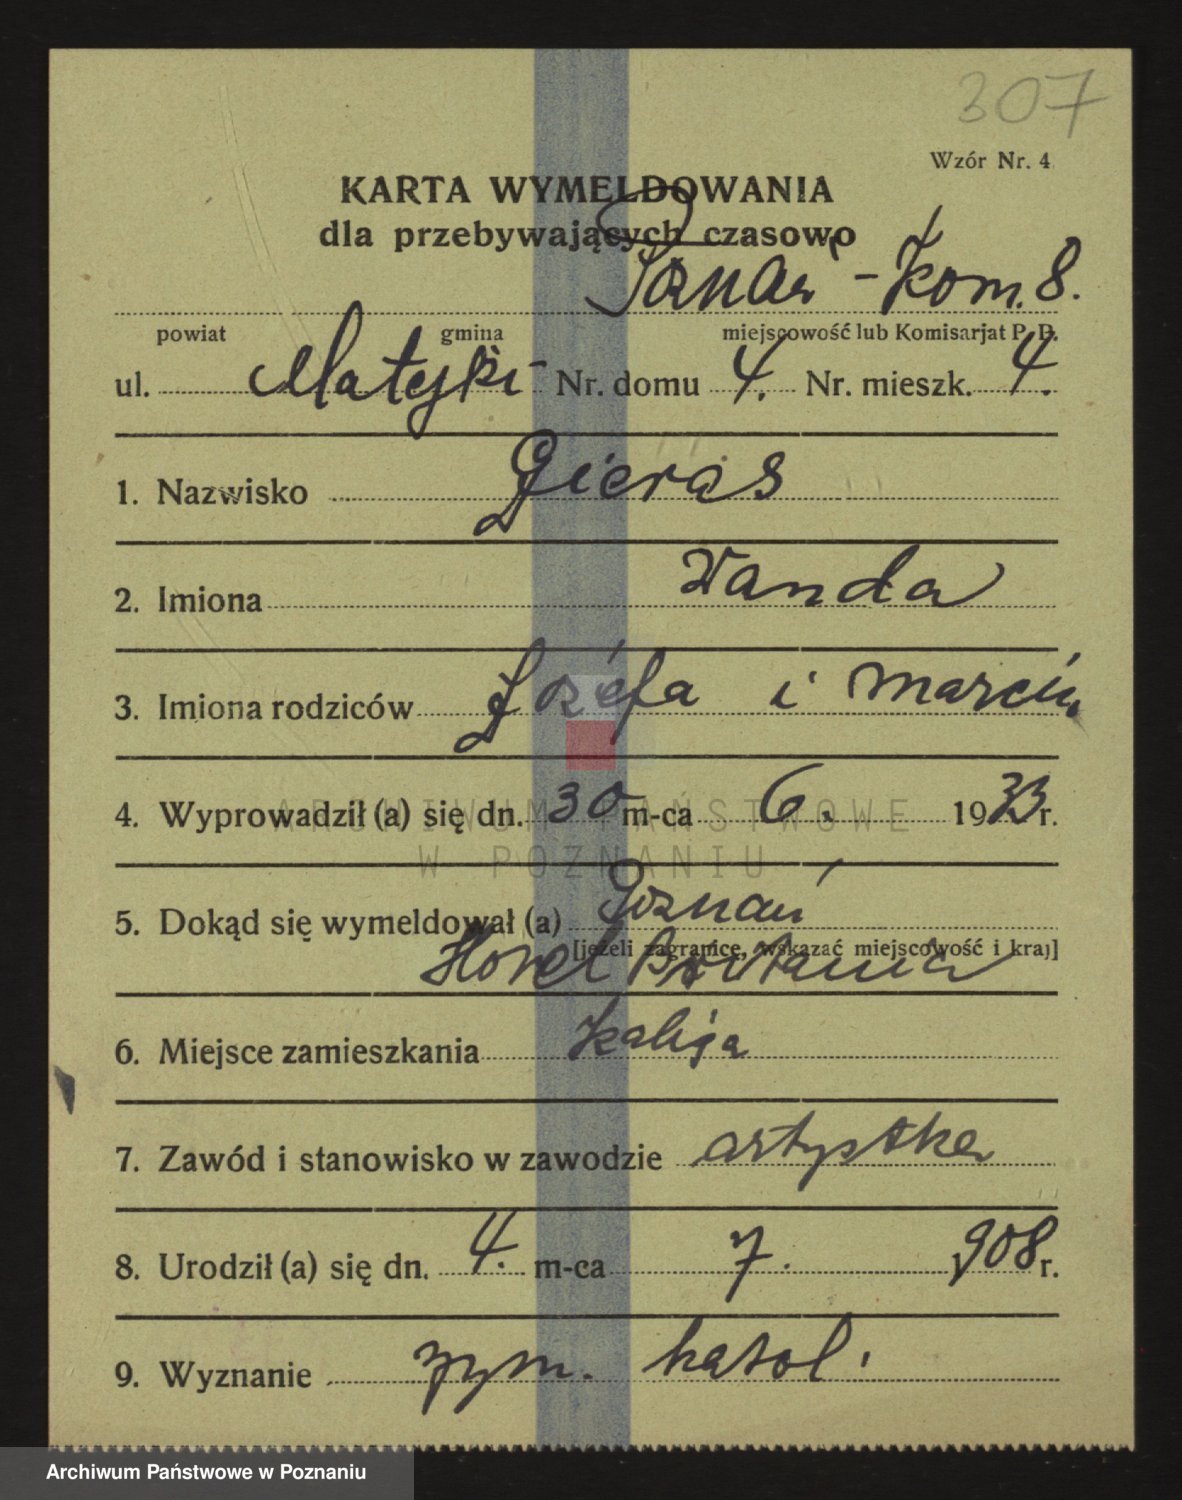 307
Wzór Nr. 4
KARTA WYMELDOWANIA
dla przebywających czasowo
Poznań - Kom. 8.
powiat gmina miejscowość lub Komisarjat P. P.
ul. Matejki Nr. domu 4. Nr. mieszk. 4.
1. Nazwisko Gieras
2. Imiona Wanda
3. Imiona rodziców Józefa i Marcin
4. Wyprowadził (a) się dn. 30 m-ca 6. 1933 r.
ARCHIWUM PAŃSTWOWE
W POZNANIU
5. Dokąd się wymeldował (a) Poznań
[jeżeli zagranicę, wskazać miejscowość i kraj]
Hotel Britania
6. Miejsce zamieszkania
7. Zawód i stanowisko w zawodzie artystka
8. Urodził (a) się dn. 4. m-ca 7. 1908 r.
9. Wyznanie rzym. katol.
Archiwum Państwowe w Poznaniu